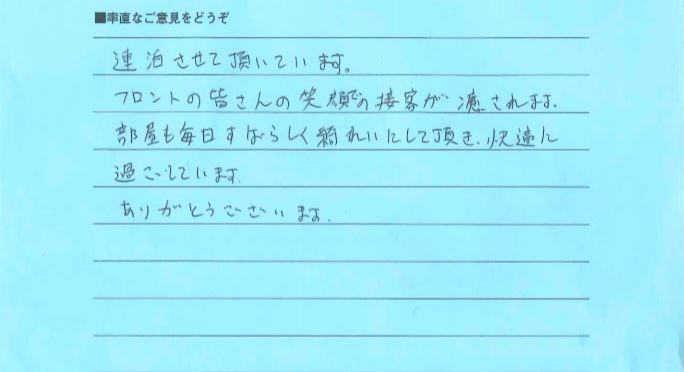 ■率直なご意見をどうぞ
連泊させて頂いています。
フロントの皆さんの笑顔での接客が癒されます.
部屋も毎日すばらしく綺れいにして頂き、快適に
過ごしています.
ありがとうございます.